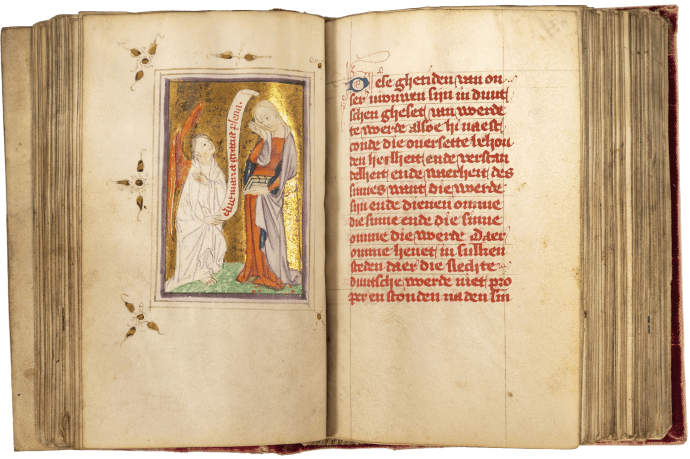 aue maria gratia plena
Dese ghetiden van on
ser vrouwen sijn in duut
schen gheset van woerde
te woerde Alsoe hi naest
conde die ouersette behou
den heelheit ende verstan
delheit ende waerheit des
sinnes want die woerde
sijn ende dienen omme
die sinne ende die sinne
omme die woerde Daer
omme heuet in sulken
steden daer die slechte
duutsche woerde niet pro
per en stonden na den sin